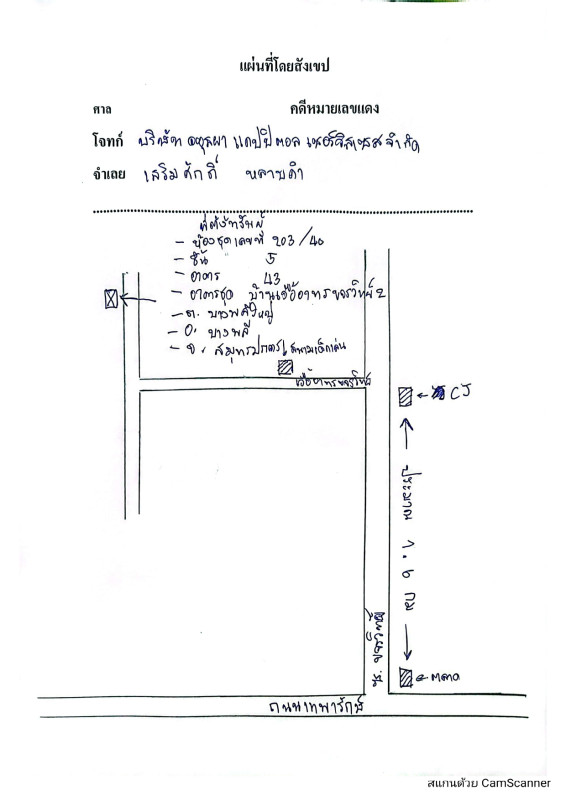 แผ่นที่โดยสังเขป
ศาล คดีหมายเลขแดง
โจทก์ บริษัท อยุธยา แคปปิตอล เซอร์วิสเซส จำกัด
จำเลย เสริมศักดิ์ หลาบคำ
ที่ตั้งทรัพย์
- ห้องชุดเลขที่ 203/40
- ชั้น " 5
- อาคาร 43
- อาคารชุด บ้านเอื้ออาทรขจรวิทย์ 2
- ต. บางพลีใหญ่
- อ. บางพลี
- จ. สมุทรปราการ สนามเด็กเล่น
เอื้ออาทรขจรวิทย์
← CJ
ประมาณ 1.6 กม
← ตลาด
ถนนเทพารักษ์
สแกนด้วย CamScanner